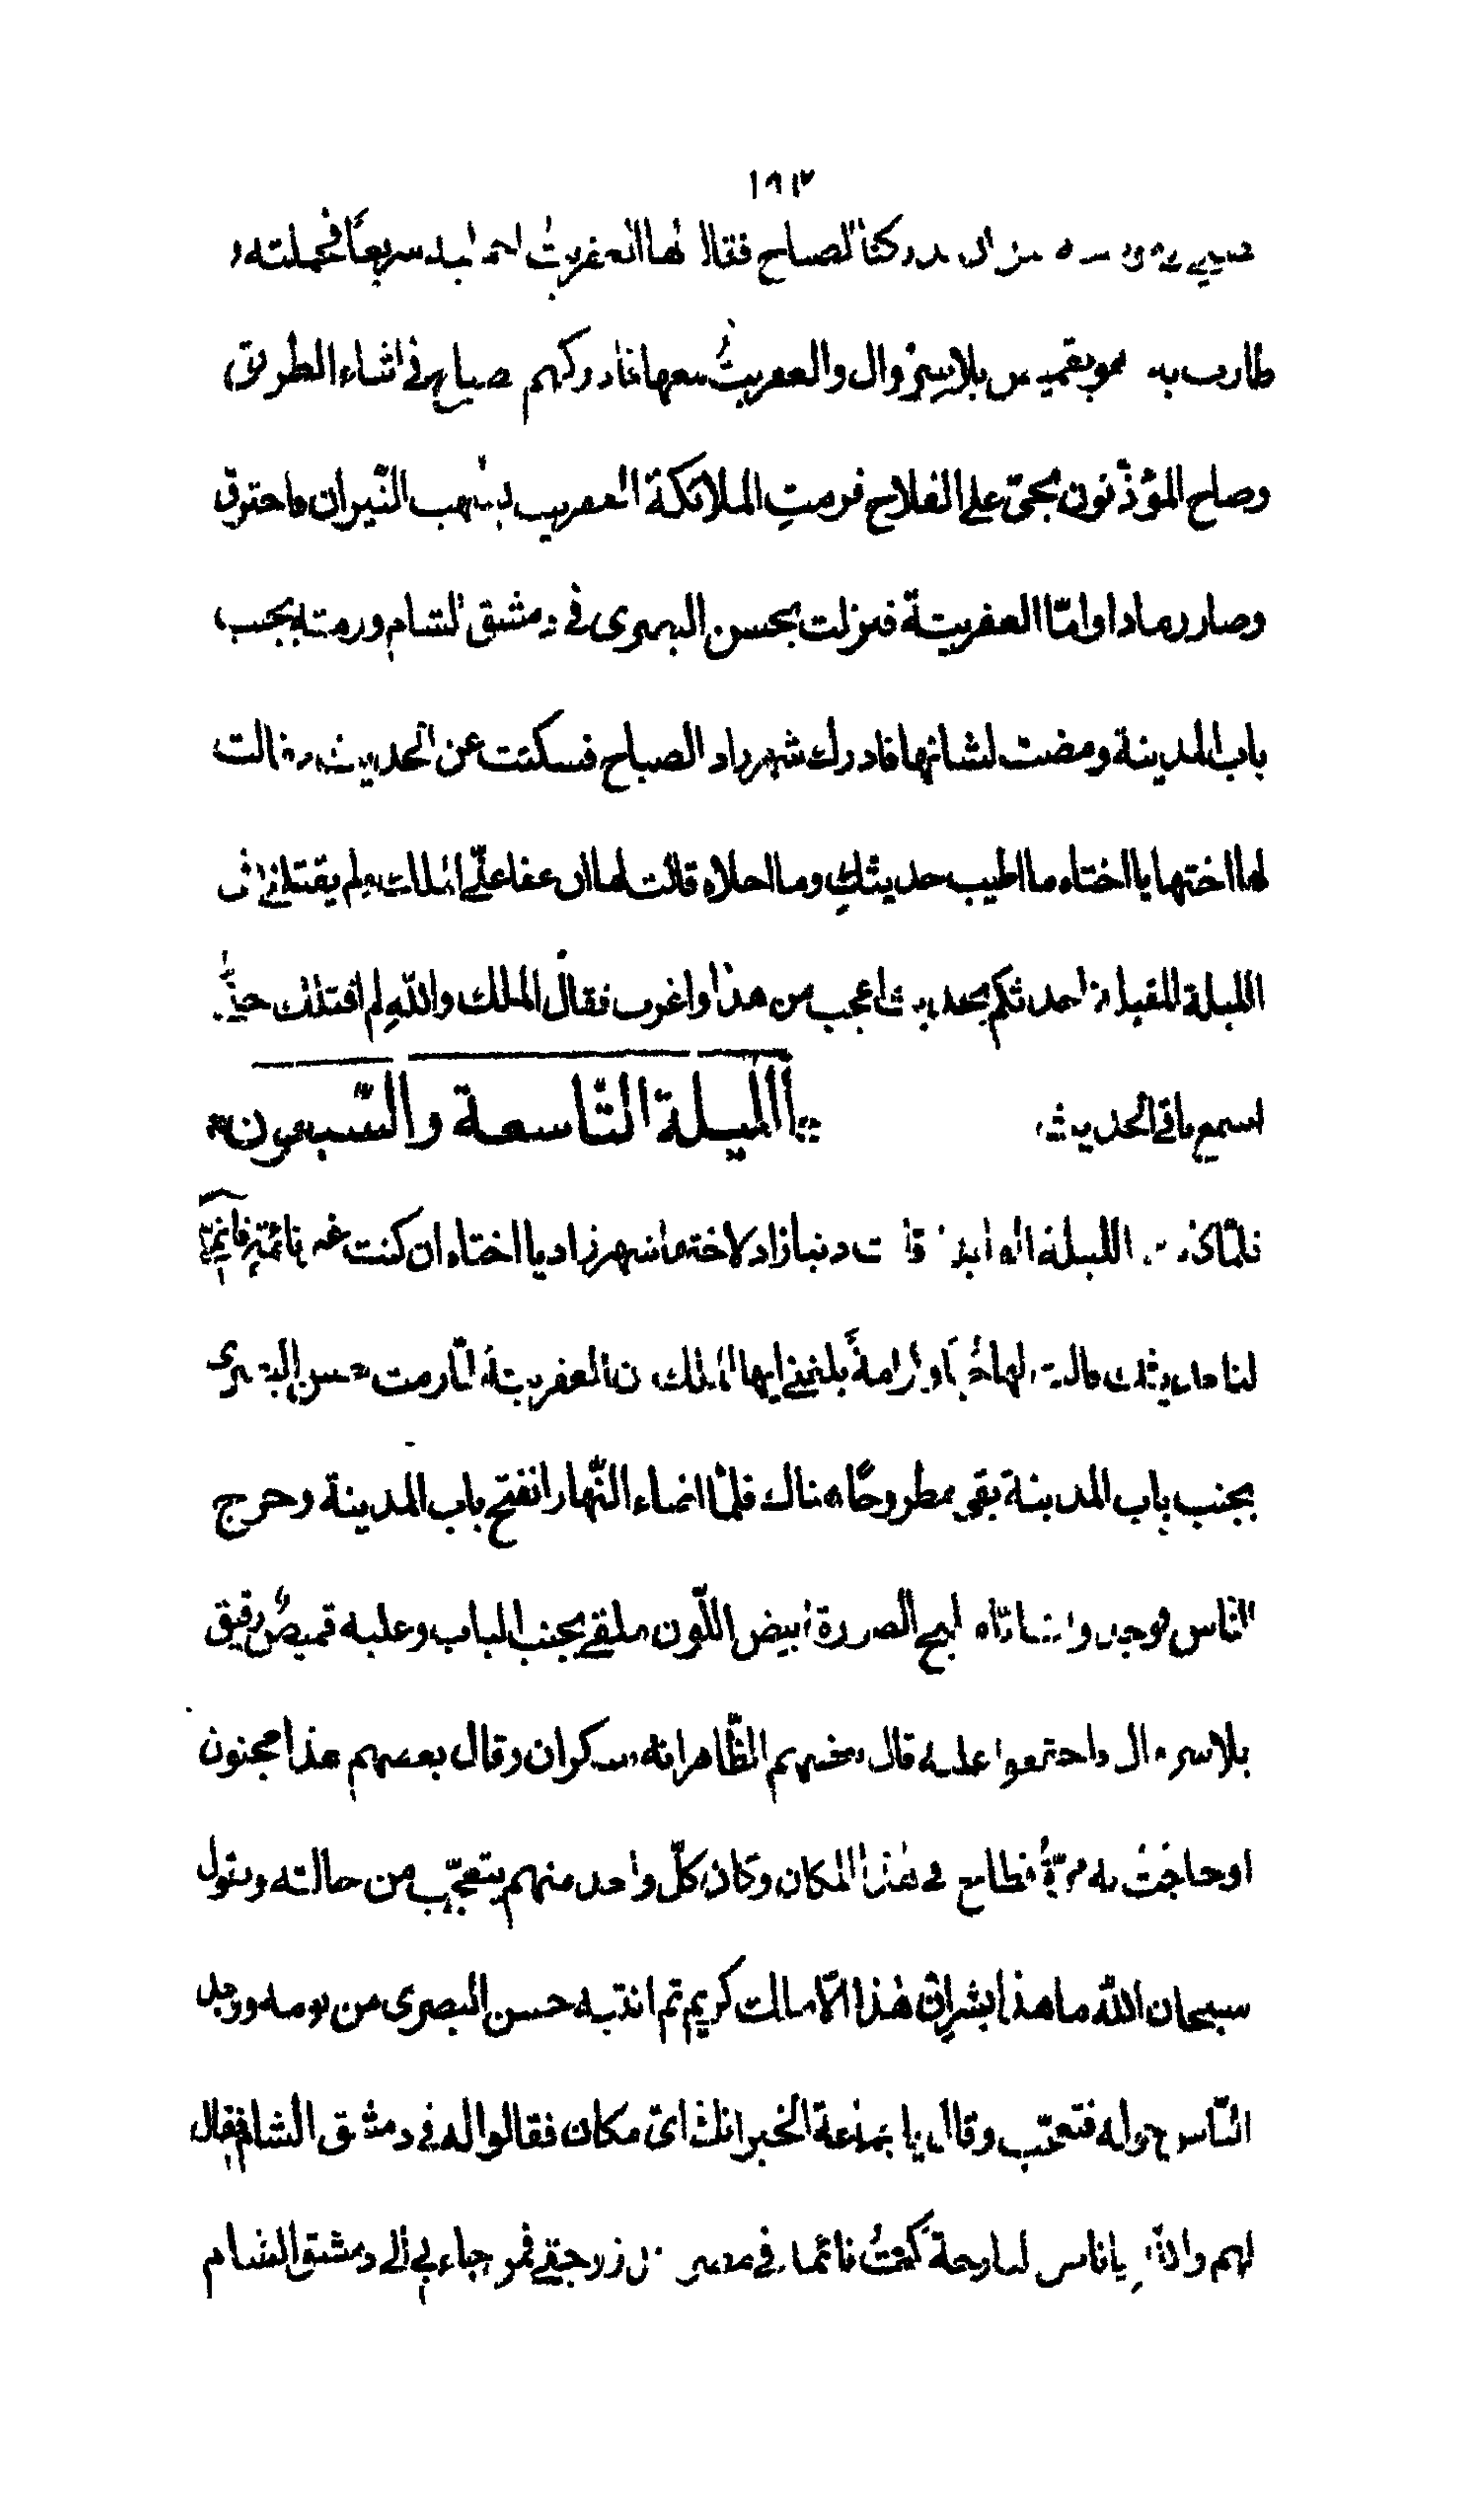 ١٩٣
الصباح فقال لها العفريت سريعًا فحملته و
طارت به بقميص بلا سروال والعفريتُ معها فادركهم صباح فى اثناء الطريق
وصاح المؤذّنون بحىّ على الفلاح فرمتِ الملائكة العفريت بلهب النّيران فاحترق
وصار رمادا وامّا العفريتة فنزلت بحسن البصرى فى دمشق الشام ورمته بجنب
باب المدينة ومضت لشانها فادرك شهرزاد الصباح فسكتت عن الحديث وقالت
لها اختها يا اختاه ما اطيب حديثكِ وما احلاه قالت لها ان عفا علىّ الملك ولم يقتلنى فى
الليلة المقبلة احدثكم بحديث اعجب من هذا واغرب فقال الملك واللهِ لم اقتلك حتّى
اسمع باقى الحديث الليلة التّاسعة والسّبعون
فلمّا كانت الليلة قالت دنيازاد لاختها شهرزاد يا اختاه ان كنت غير نائمةٍ فاتمّى
لنا حديثك قالت لها حُبًّا وكرامةً بلغنى ايها الملك ان العفريتة لمّا رمت حسن البصرى
بجنب باب المدينة بقى مطروحًا هناك فلمّا اضاء النّهار انفتح باب المدينة وخرج
النّاس فوجدوا شابّاه الصورة ابيض اللّون ملقى بجنب الباب وعليه قميصٌ رقيق
بلا سروال واجتمعوا عليه قال بعضهم الظّاهر انه سكران وقال بعضهم هذا مجنون
او حاجتُ به فى هٰذا المكان وكان كلّ واحد منهم يتعجّب من حالته ويقول
سبحان الله ما هذا بشر ان هٰذا الّا ملك كريم ثم انتبه حسن البصرى من نومه ووجد
النّاس حوله فتعجّب وقال يا جماعة الخير انا فى اىّ مكان فقالوا له فى دمشق الشام فقال
لهم واللهِ يا ناس البارحة كنتُ نائما فى مصر زوجتى فمن جاء بى الى دمشق الشام